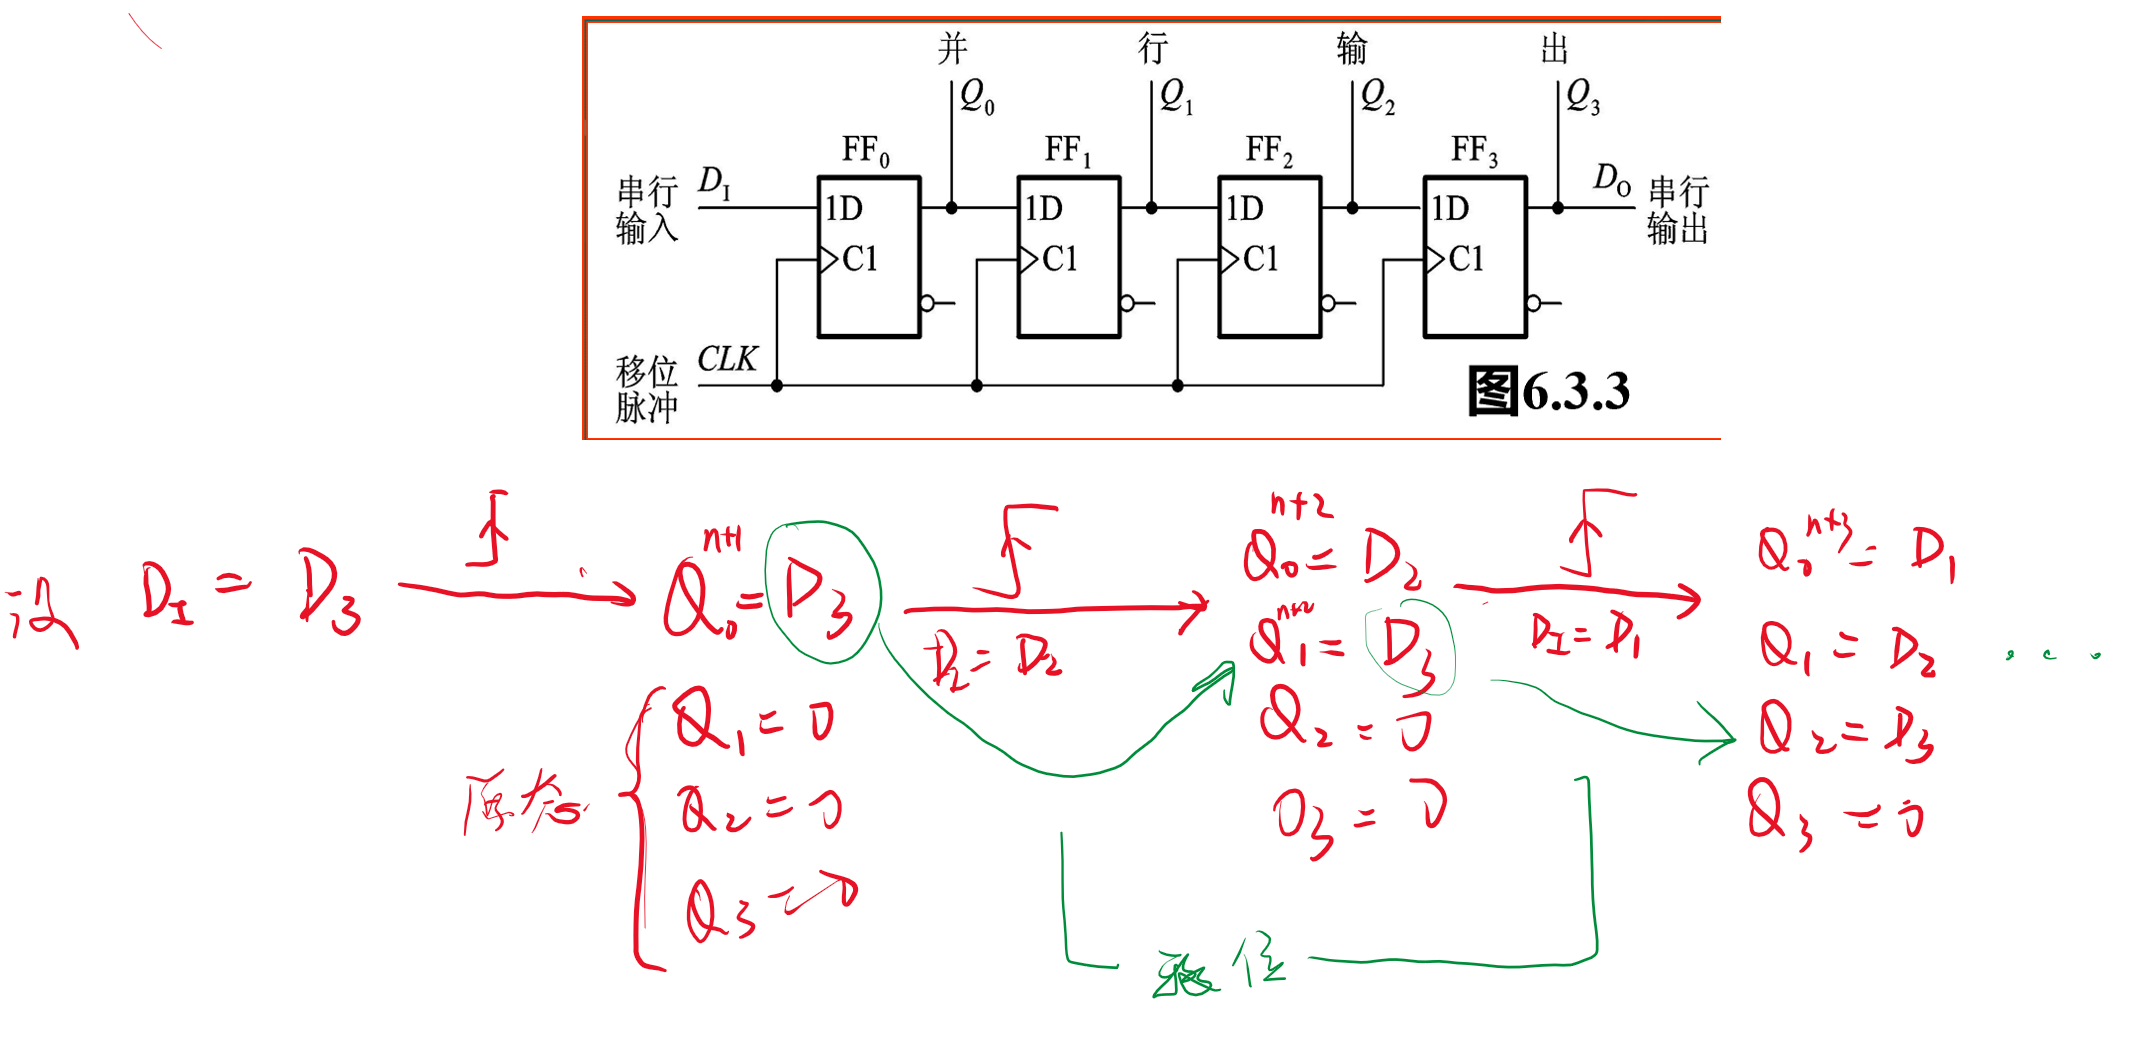 并 行 输 出
Q0 Q1 Q2 Q3
FF0 FF1 FF2 FF3
串行输入 DI 1D 1D 1D 1D DO 串行输出
C1 C1 C1 C1
移位脉冲 CLK
图6.3.3
设 DI = D3
Q0^{n+1} = D3
原态
Q1 = 0
Q2 = 0
Q3 = 0
DI = D2
Q0^{n+2} = D2
Q1^{n+2} = D3
Q2 = 0
Q3 = 0
DI = D1
Q0^{n+3} = D1
Q1 = D2 ...
Q2 = D3
Q3 = 0
移位